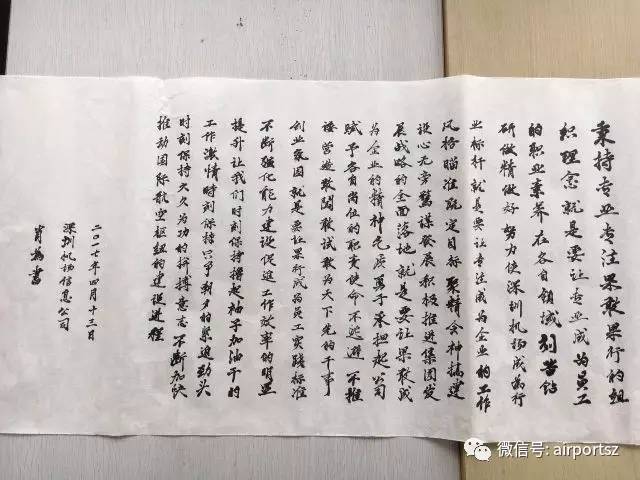 秉持专业专注果敢果行的组
织理念就是要让专业成为员工
的职业素养在各自领域刻苦钻
研做精做好努力使深圳机场成为行
业标杆就是要让专注成为企业的工作
风格瞄准既定目标聚精会神搞建
设心无旁骛谋发展积极推进集团发
展战略的全面落地就是要让果敢成
为企业的精神气质勇于承担起公司
赋予各自岗位的职责使命不逃避不推
诿营造敢闯敢试敢为天下先的干事
创业氛围就是要让果行成为员工实践标准
不断强化能力建设促进工作效率的明显
提升让我们时刻保持撸起袖子加油干的
工作激情时刻保持只争朝夕的紧迫劲头
时刻保持久久为功的拼搏意志不断加快
推动国际航空枢纽的建设进程
二〇一七年四月十三日
深圳机场信息公司
肖书
微信号: airportsz